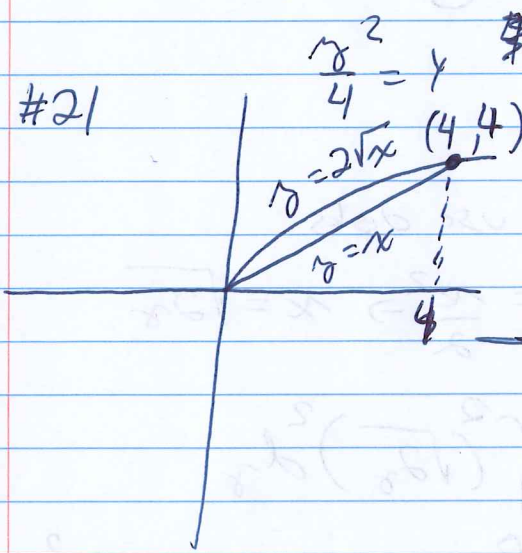 #21
y²/4 = x
y = 2√x
(4,4)
y = x
4